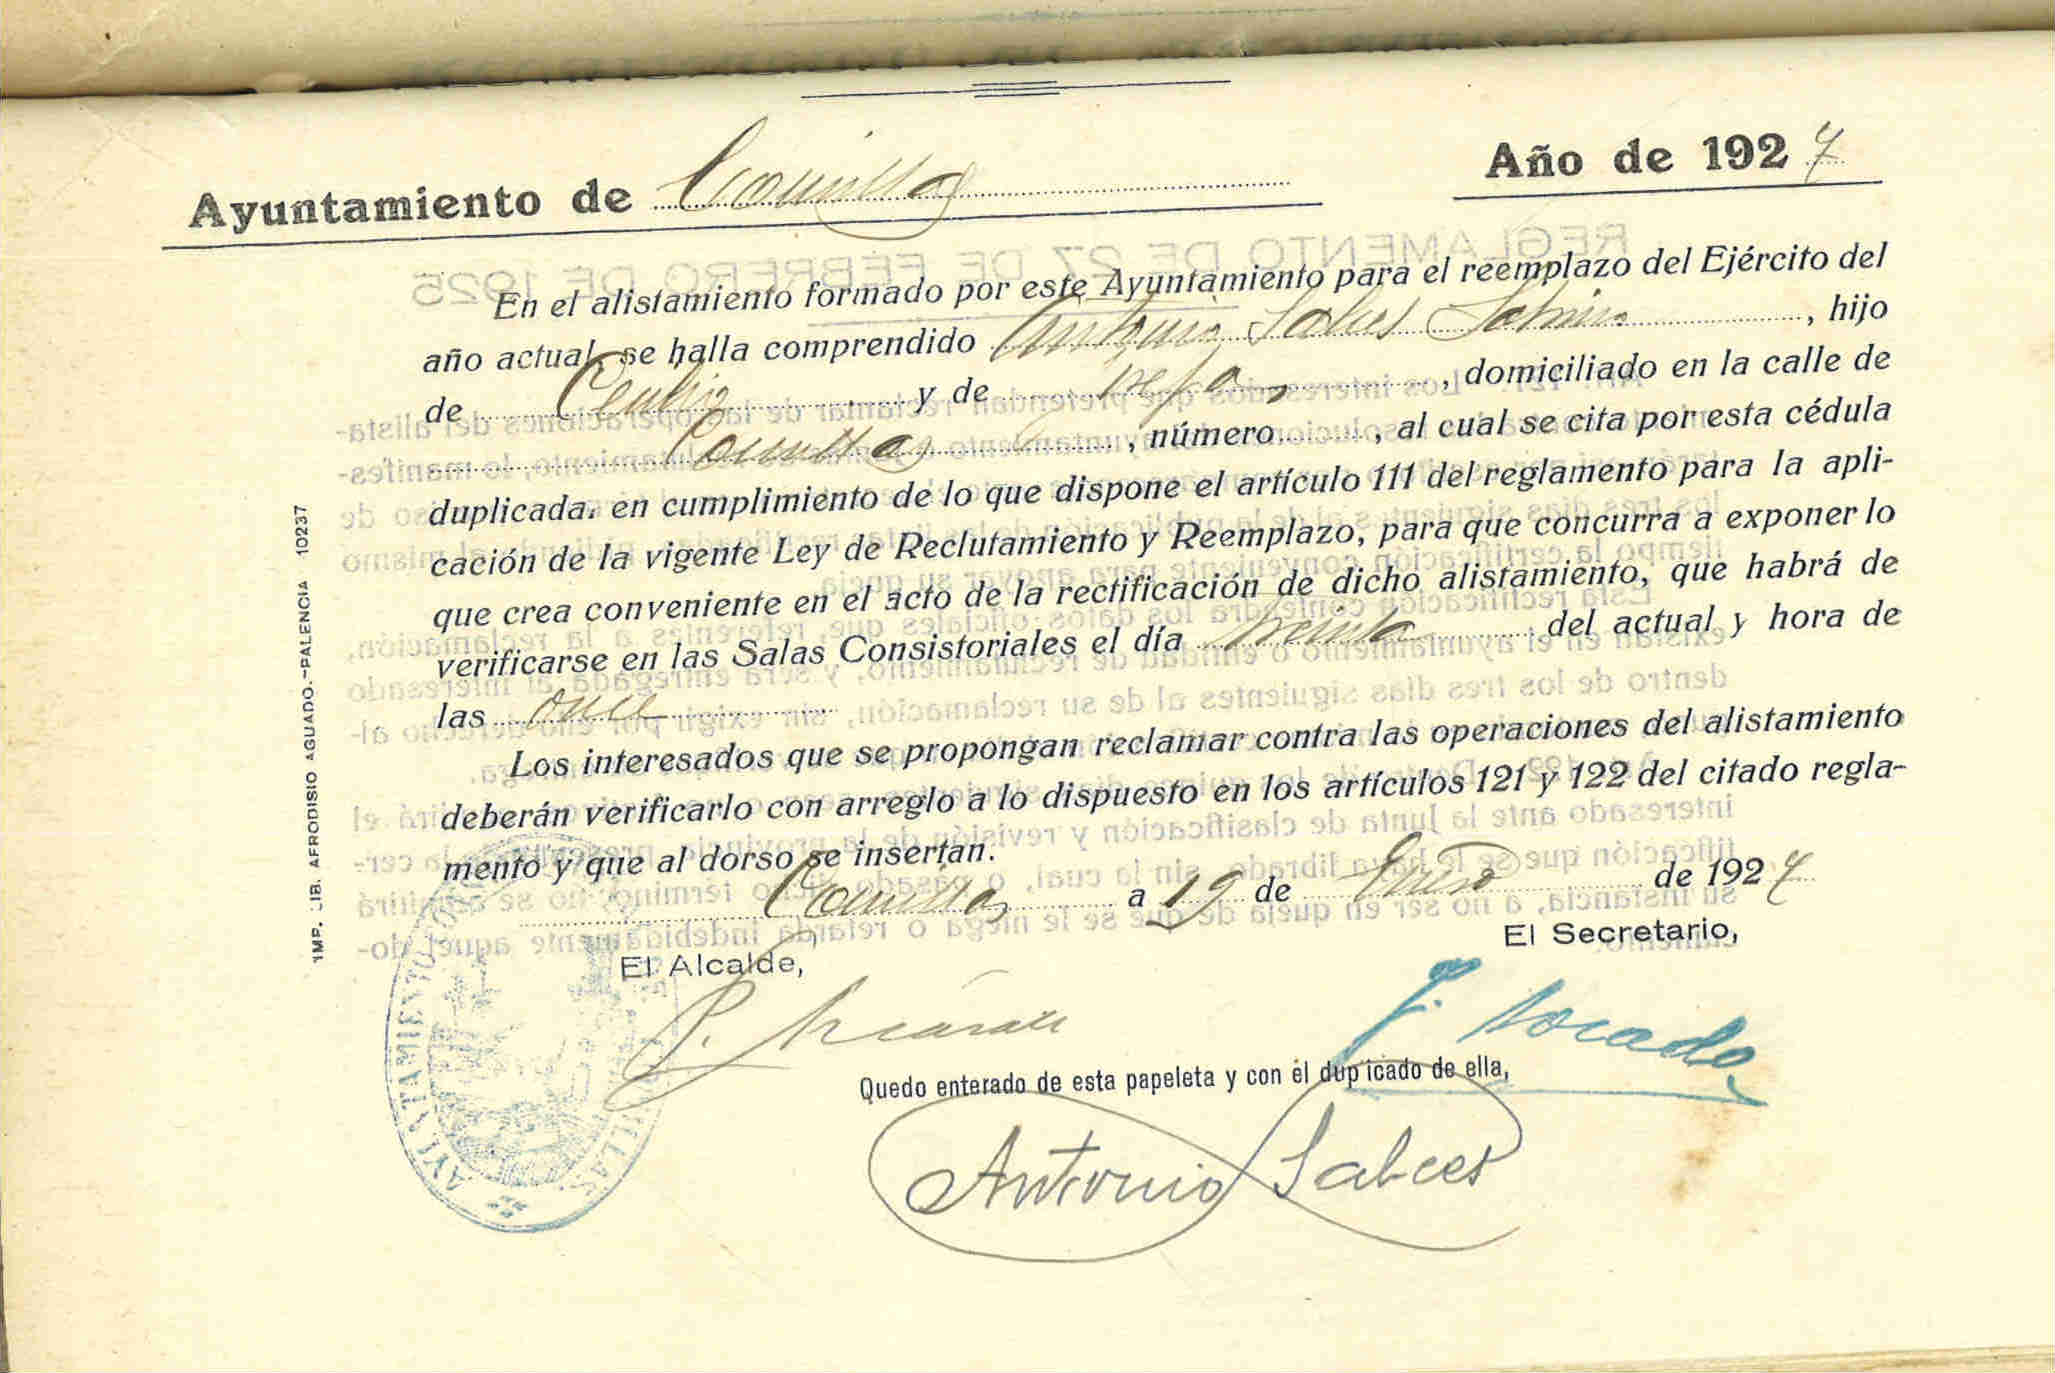 Ayuntamiento de Comillas
Año de 1927
En el alistamiento formado por este Ayuntamiento para el reemplazo del Ejército del
año actual, se halla comprendido Antonio Salces, hijo
de y de, domiciliado en la calle de
Comillas, número, al cual se cita por esta cédula
duplicada, en cumplimiento de lo que dispone el artículo 111 del reglamento para la apli-
cación de la vigente Ley de Reclutamiento y Reemplazo, para que concurra a exponer lo
que crea conveniente en el acto de la rectificación de dicho alistamiento, que habrá de
verificarse en las Salas Consistoriales el día treinta del actual y hora de
las once
Los interesados que se propongan reclamar contra las operaciones del alistamiento
deberán verificarlo con arreglo a lo dispuesto en los artículos 121 y 122 del citado regla-
mento y que al dorso se insertan.
Comillas a 19 de Enero de 1927
El Alcalde,
El Secretario,
Quedo enterado de esta papeleta y con el duplicado de ella,
Antonio Salces
IMP. LIB. AFRODISIO AGUADO.-PALENCIA 10237